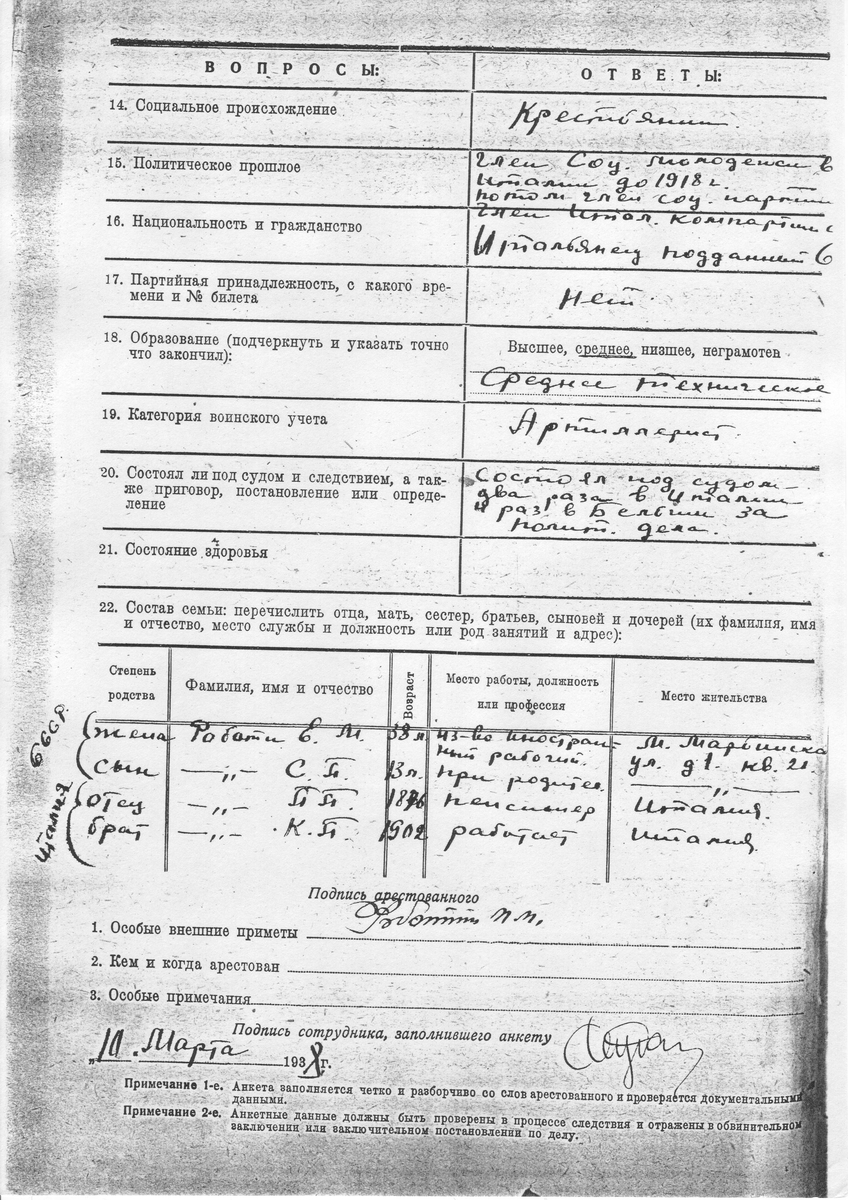 ВОПРОСЫ: ОТВЕТЫ:
14. Социальное происхождение Крестьянин
15. Политическое прошлое Член Соц. молодежи в
Италии до 1918 г.
потом член соц. партии
Член Итал. компартии с
16. Национальность и гражданство Итальянец подданный
17. Партийная принадлежность, с какого вре-
мени и № билета Нет
18. Образование (подчеркнуть и указать точно
что закончил): Высшее, среднее, низшее, неграмотен
Среднее техническое
19. Категория воинского учета Артиллерист
20. Состоял ли под судом и следствием, а так-
же приговор, постановление или опреде-
ление
Состоял под судом
два раза в Италии
раз в Бельгии за
полит. дела.
21. Состояние здоровья
22. Состав семьи: перечислить отца, мать, сестер, братьев, сыновей и дочерей (их фамилия, имя
и отчество, место службы и должность или род занятий и адрес):
Степень родства Фамилия, имя и отчество Возраст Место работы, должность или профессия Место жительства
СССР
жена Роботи Е. М. 38 л. из-во иностран-
ный рабочий. М. Марьинска
ул. д 1. кв. 21.
сын —„— С. П. 13 л. при родител. —„—
Италия
отец —„— П П. 1876 пенсионер Италия.
брат —„— К. П 1902 работает Италия.
Подпись арестованного
Роботти П.М.
1. Особые внешние приметы
2. Кем и когда арестован
3. Особые примечания
Подпись сотрудника, заполнившего анкету
„10. Марта 1938 г.
Примечание 1-е. Анкета заполняется четко и разборчиво со слов арестованного и проверяется документальными
данными.
Примечание 2-е. Анкетные данные должны быть проверены в процессе следствия и отражены в обвинительном
заключении или заключительном постановлении по делу.